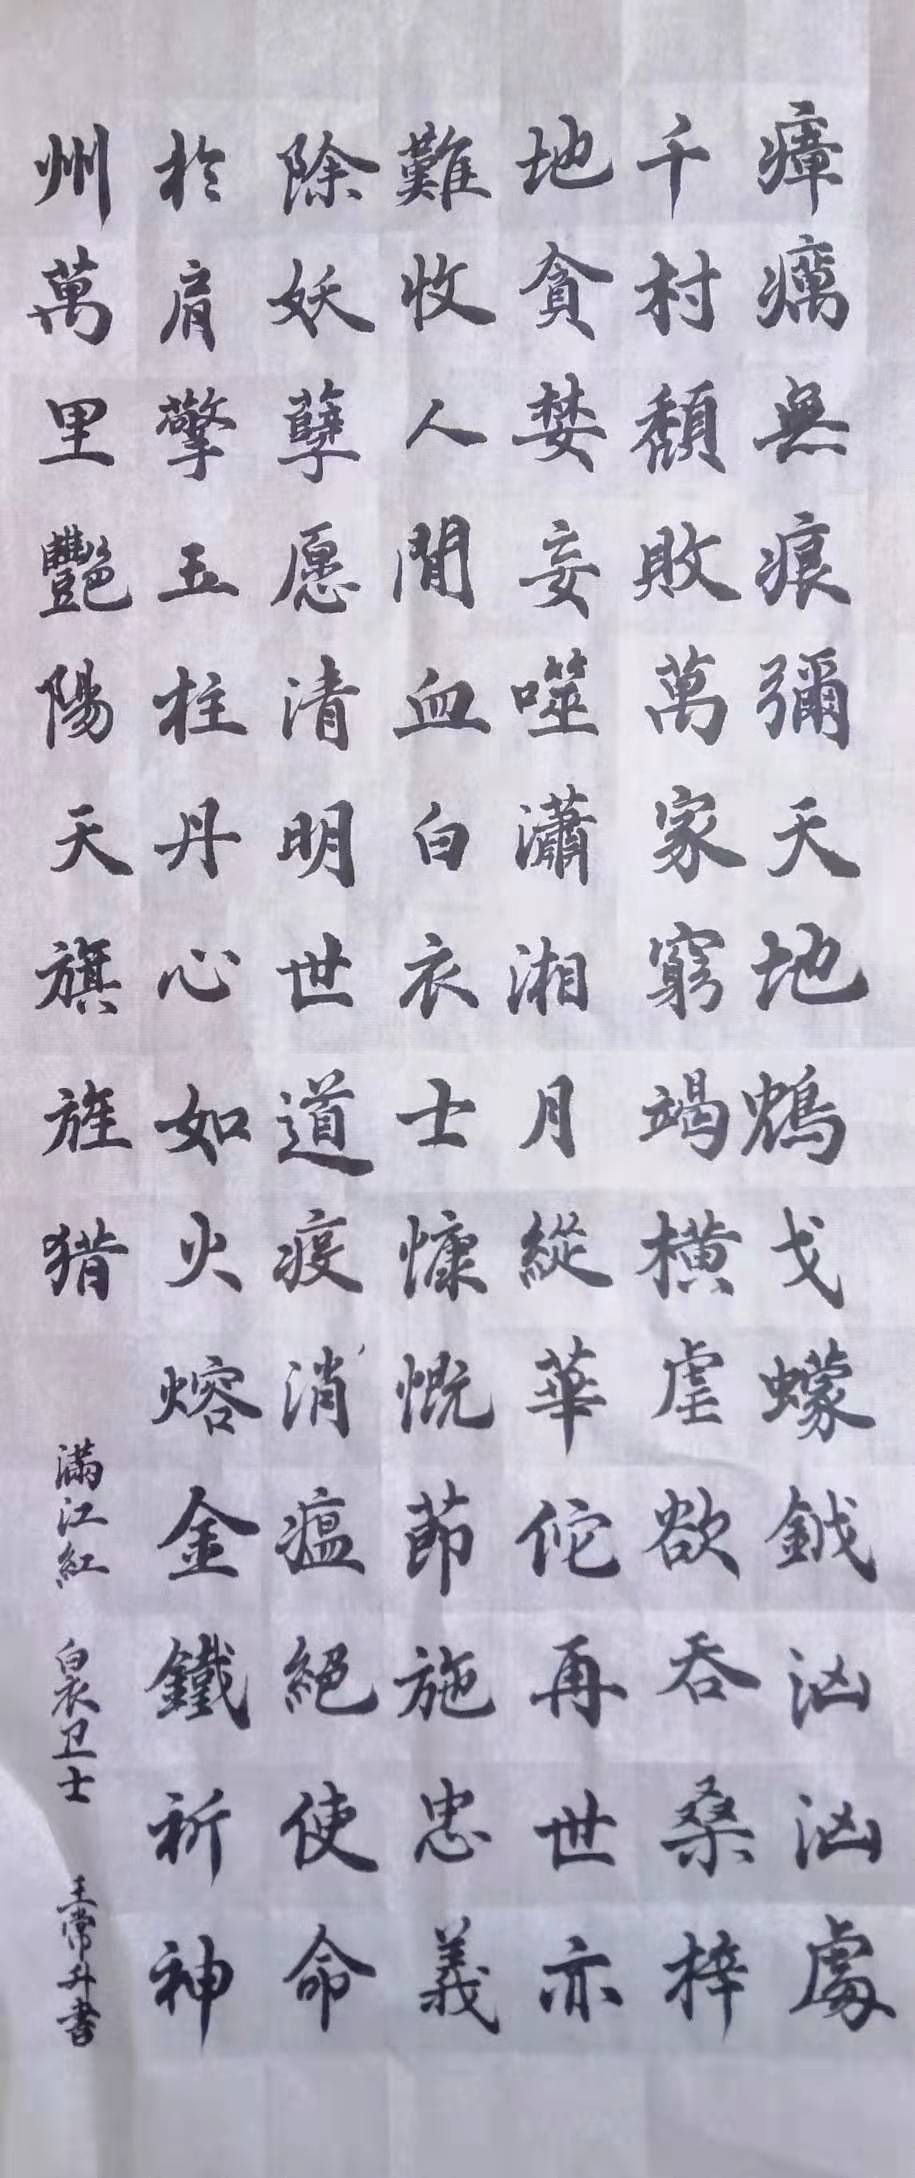 瘴癘無痕彌天地鴆戈蠓鉞汹汹處
千村頹敗萬家窮竭橫虐欲吞桑梓
地貪婪妄噬瀟湘月縱華佗再世亦
難收人間血白衣士慷慨節施忠義
除妖孽愿清明世道疫消瘟絕使命
於肩擎五柱丹心如火熔金鐵祈神
州萬里艷陽天旗旌猎
滿江紅 白衣卫士 王常升書